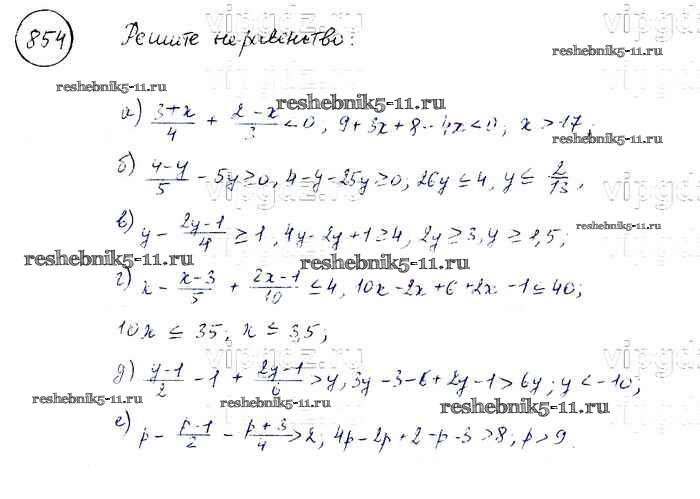 854 Решите неравенство:
vipgdz
reshebnik5-11.ru reshebnik5-11.ru
а) (3+x)/4 + (2-x)/3 < 0, 9+3x+8-4x<0; x>17;
reshebnik5-11.ru
б) (4-y)/5 - 5y ≥ 0, 4-y-25y ≥ 0; 26y ≤ 4, y ≤ 2/13,
в) y - (2y-1)/4 ≥ 1, 4y-2y+1 ≥ 4, 2y ≥ 3, y ≥ 1,5;
reshebnik5-11.ru
reshebnik5-11.ru reshebnik5-11.ru
г) x - (x-3)/5 + (2x-1)/10 ≤ 4, 10x-2x+6+2x-1 ≤ 40;
10x ≤ 35, x ≤ 3,5;
vipgdz
д) (y-1)/2 - 1 + (2y-1)/6 > y, 3y-3-6+2y-1 > 6y; y < -10;
reshebnik5-11.ru reshebnik5-11.ru reshebnik5-11.ru
е) p - (p-1)/2 - (p+3)/4 > 2; 4p-2p+2-p-3 > 8; p > 9.